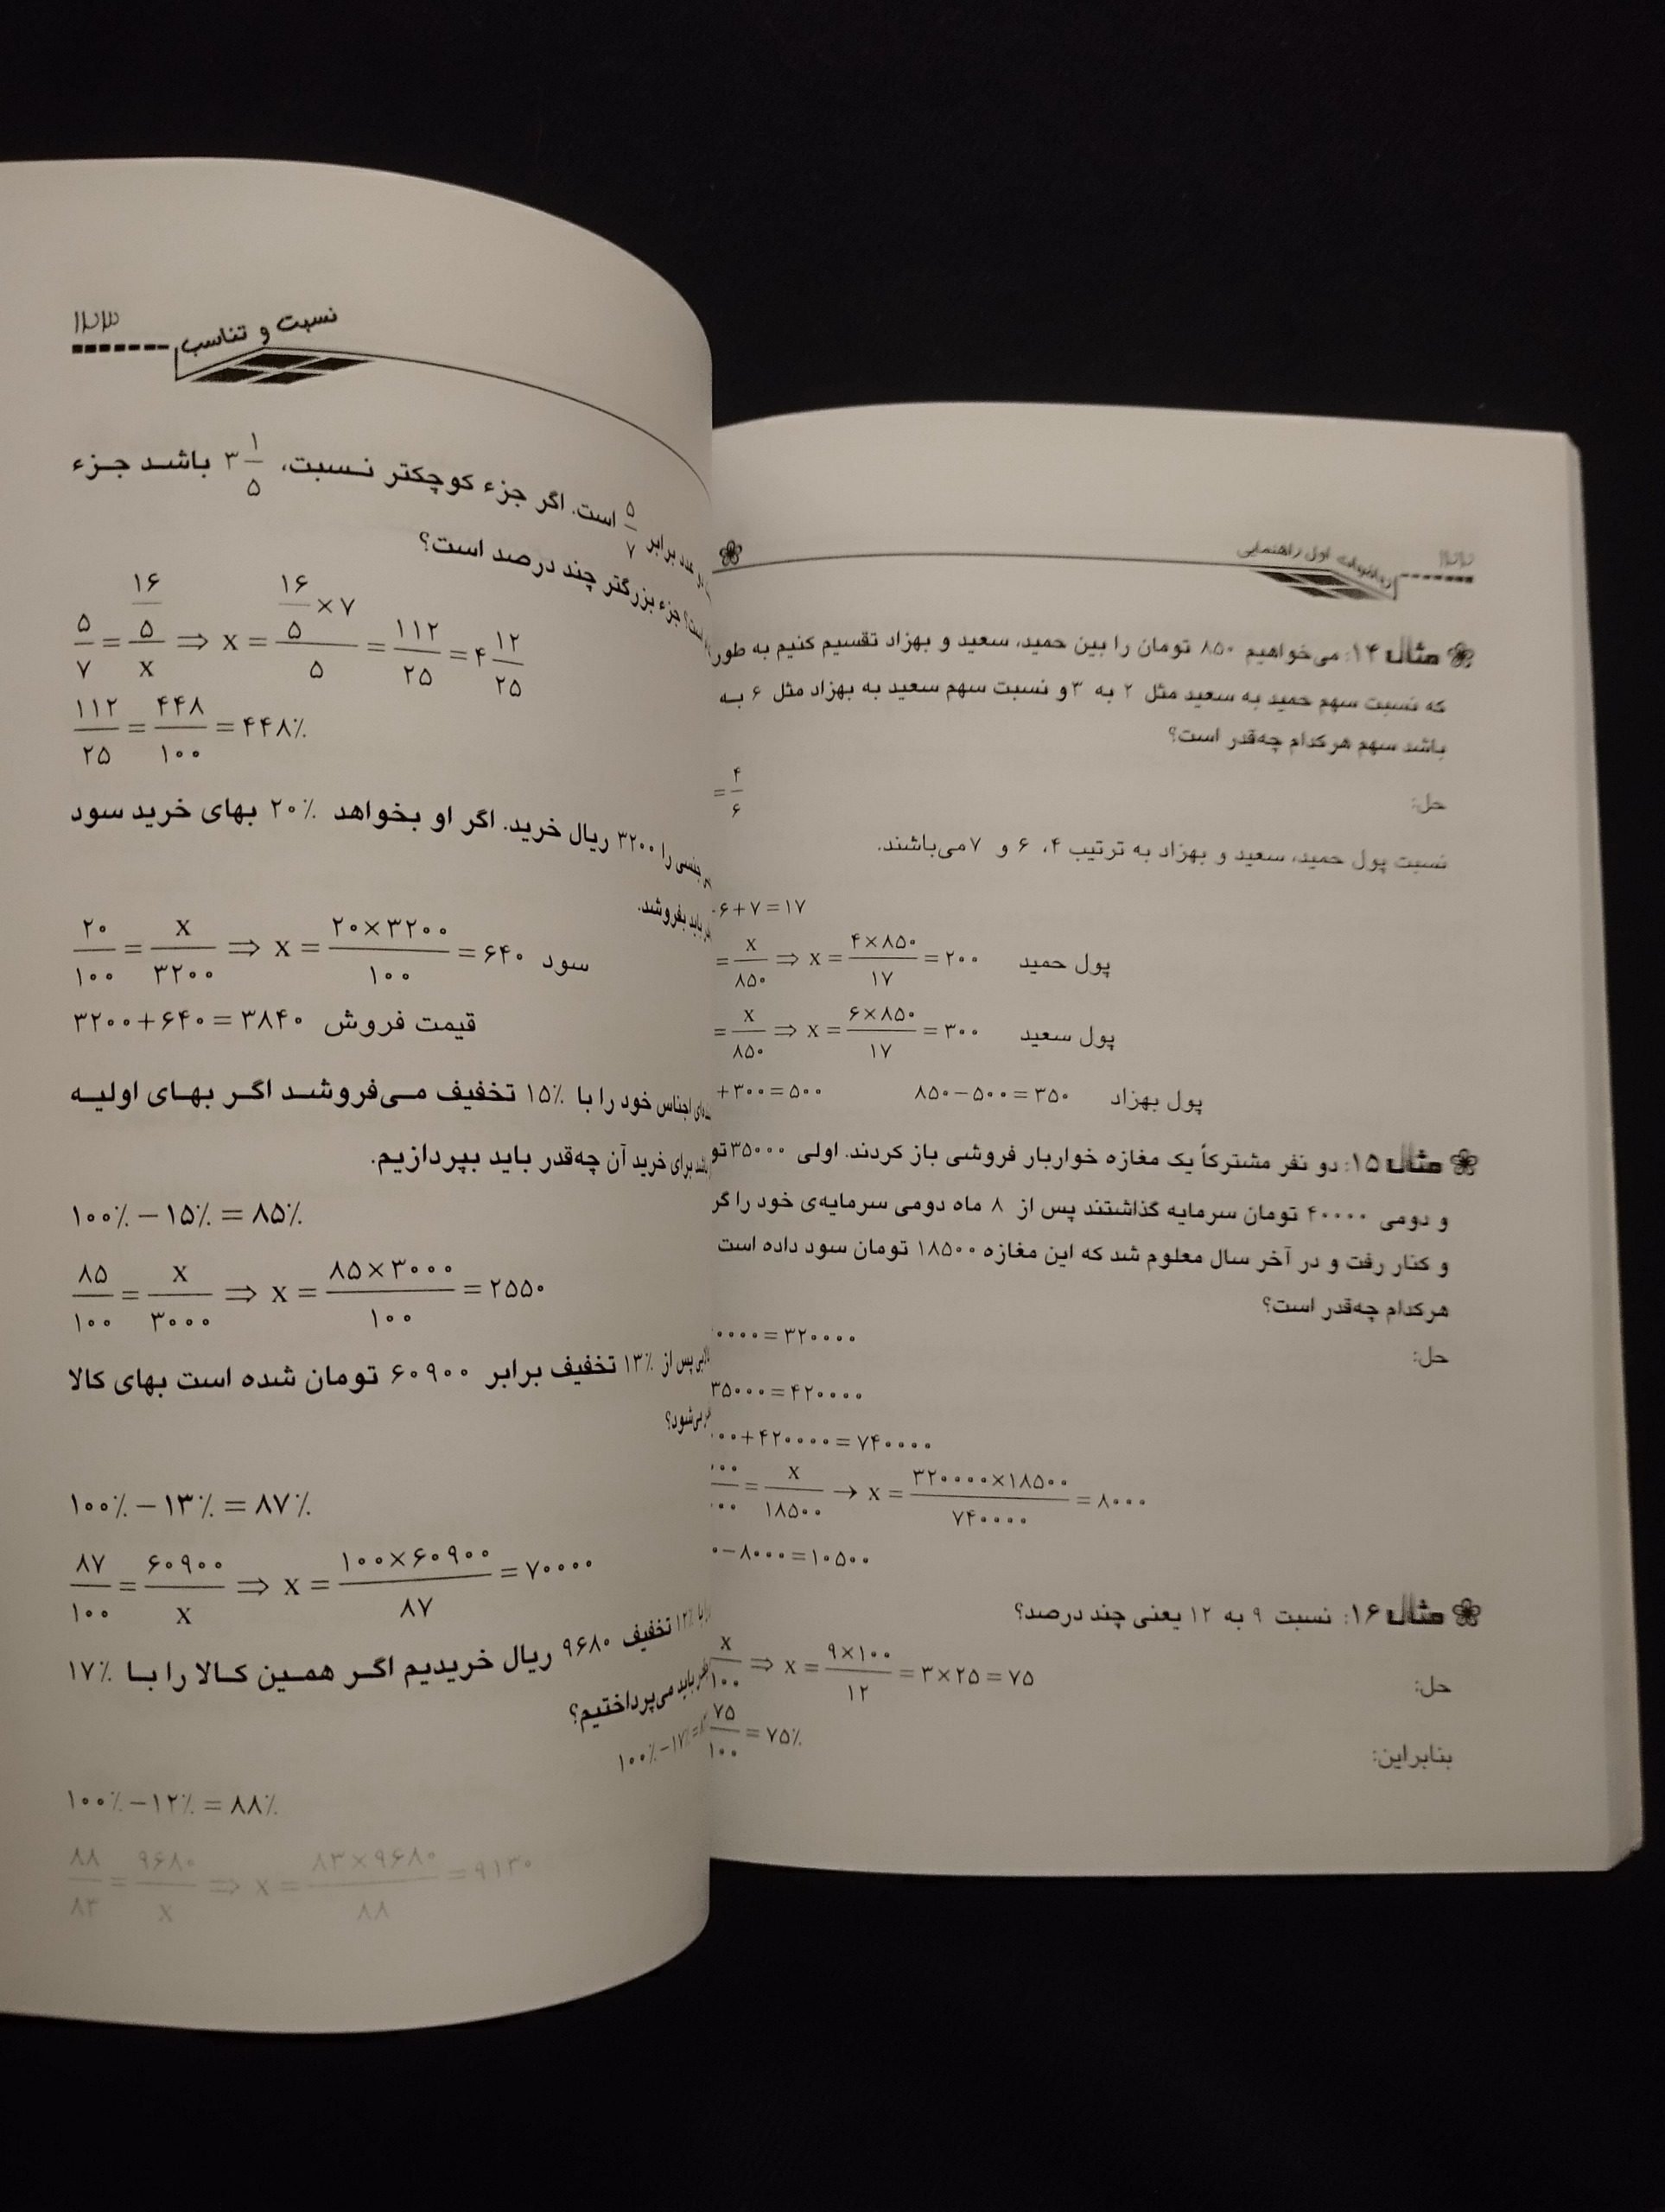 ۱۲۲
ریاضیات اول راهنمایی
مثال ۱۴: می‌خواهیم ۸۵۰ تومان را بین حمید، سعید و بهزاد تقسیم کنیم به طور
که نسبت سهم حمید به سعید مثل ۲ به ۳ و نسبت سهم سعید به بهزاد مثل ۶ به
باشد سهم هرکدام چه‌قدر است؟
حل:
= ۴/۶
نسبت پول حمید، سعید و بهزاد به ترتیب ۴، ۶ و ۷ می‌باشند.
۶+۷=۱۷
= x/۸۵۰ ⇒ x = ۴×۸۵۰/۱۷ = ۲۰۰ پول حمید
= x/۸۵۰ ⇒ x = ۶×۸۵۰/۱۷ = ۳۰۰ پول سعید
+۳۰۰=۵۰۰ ۸۵۰−۵۰۰=۳۵۰ پول بهزاد
مثال ۱۵: دو نفر مشترکاً یک مغازه خواربار فروشی باز کردند. اولی ۳۵۰۰۰ تو
و دومی ۴۰۰۰۰ تومان سرمایه گذاشتند پس از ۸ ماه دومی سرمایه‌ی خود را گر
و کنار رفت و در آخر سال معلوم شد که این مغازه ۱۸۵۰۰ تومان سود داده است
هرکدام چه‌قدر است؟
حل:
۰۰۰۰=۳۲۰۰۰۰
۳۵۰۰۰=۴۲۰۰۰۰
۰۰+۴۲۰۰۰۰=۷۴۰۰۰۰
= x/۱۸۵۰۰ → x = ۳۲۰۰۰۰×۱۸۵۰۰/۷۴۰۰۰۰ = ۸۰۰۰
−۸۰۰۰=۱۰۵۰۰
مثال ۱۶: نسبت ۹ به ۱۲ یعنی چند درصد؟
حل:
x/۱۰۰ ⇒ x = ۹×۱۰۰/۱۲ = ۳×۲۵ = ۷۵
بنابراین:
۷۵/۱۰۰ = ۷۵٪
۱۲۳
نسبت و تناسب
دو عدد برابر ۵/۷ است. اگر جزء کوچکتر نسبت، ۳ ۱/۵ باشد جزء
است؟ جزء بزرگتر چند درصد است؟
۵/۷ = (۱۶/۵)/x ⇒ x = (۱۶/۵ ×۷)/۵ = ۱۱۲/۲۵ = ۴ ۱۲/۲۵
۱۱۲/۲۵ = ۴۴۸/۱۰۰ = ۴۴۸٪
جنسی را ۳۲۰۰ ریال خرید. اگر او بخواهد ۲۰٪ بهای خرید سود
باید بفروشد.
۲۰/۱۰۰ = x/۳۲۰۰ ⇒ x = ۲۰×۳۲۰۰/۱۰۰ = ۶۴۰ سود
۳۲۰۰+۶۴۰=۳۸۴۰ قیمت فروش
اجناس خود را با ۱۵٪ تخفیف می‌فروشد اگر بهای اولیه
برای خرید آن چه‌قدر باید بپردازیم.
۱۰۰٪ − ۱۵٪ = ۸۵٪
۸۵/۱۰۰ = x/۳۰۰۰ ⇒ x = ۸۵×۳۰۰۰/۱۰۰ = ۲۵۵۰
پس از ۱۳٪ تخفیف برابر ۶۰۹۰۰ تومان شده است بهای کالا
می‌شود؟
۱۰۰٪ − ۱۳٪ = ۸۷٪
۸۷/۱۰۰ = ۶۰۹۰۰/x ⇒ x = ۱۰۰×۶۰۹۰۰/۸۷ = ۷۰۰۰۰
با ۱۲٪ تخفیف ۹۶۸۰ ریال خریدیم اگر همین کالا را با ۱۷٪
باید می‌پرداختیم؟
۱۰۰٪ −۱۷٪ =
۱۰۰٪ −۱۲٪ = ۸۸٪
۸۸/۸۳ = ۹۶۸۰/x ⇒ x = ۸۳×۹۶۸۰/۸۸ = ۹۱۳۰